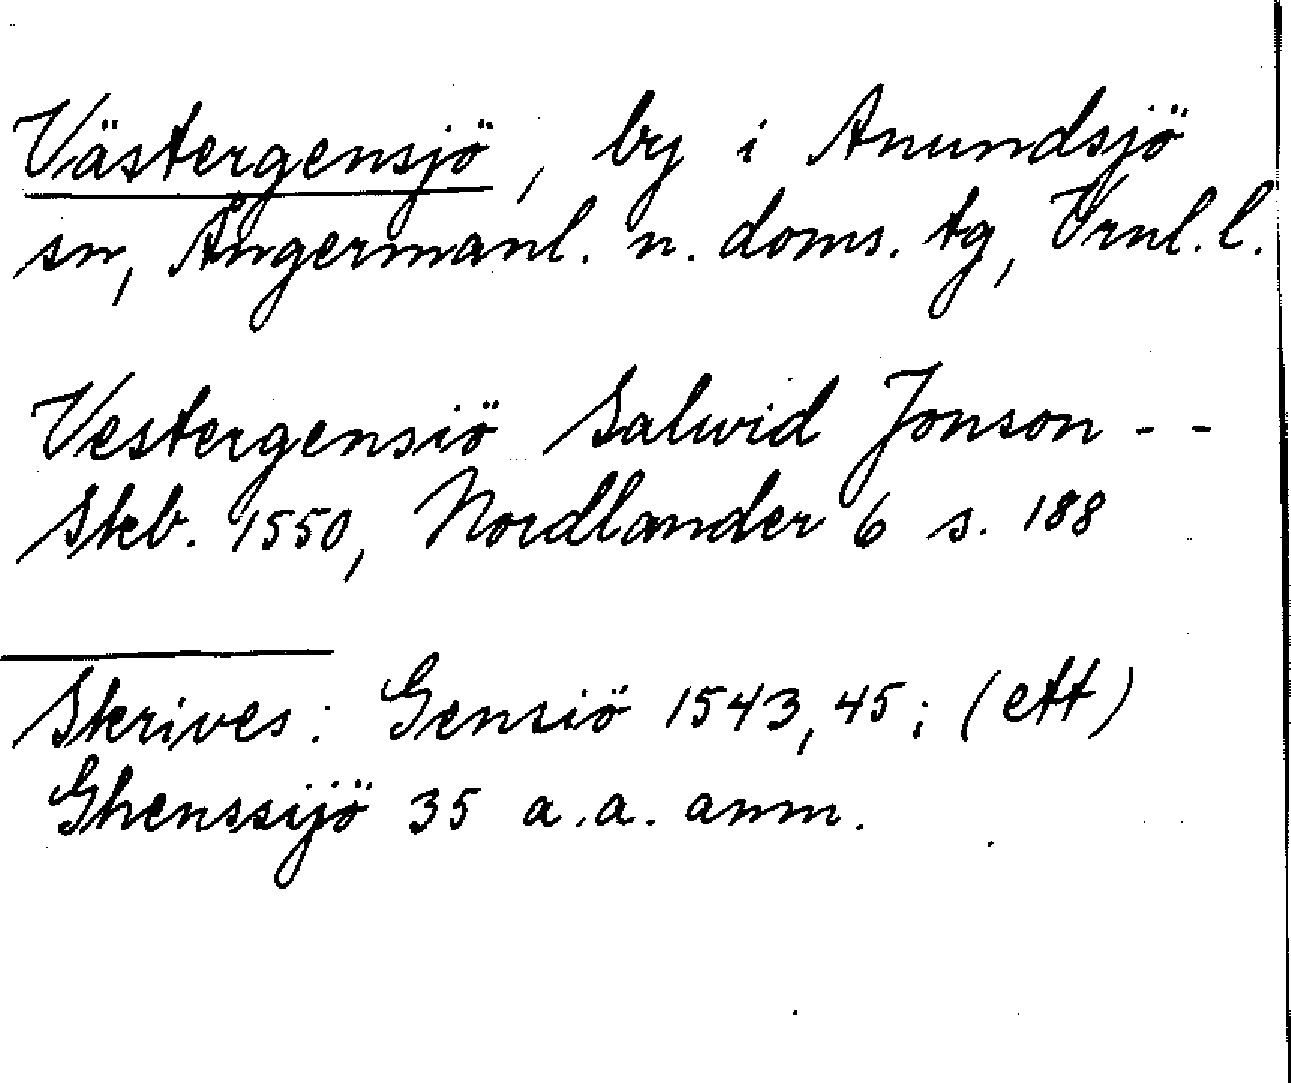 Västergensjö, by i Anundsjö
sn, Ångermanl. n. doms. tg, Vrnl. l.
Vestergensiö Salwid Jonson - -
Skb. 1550, Nordlander 6 s. 188
Skrives: Gensiö 1543, 45; (ett)
Ghenssijö 35 a.a. anm.